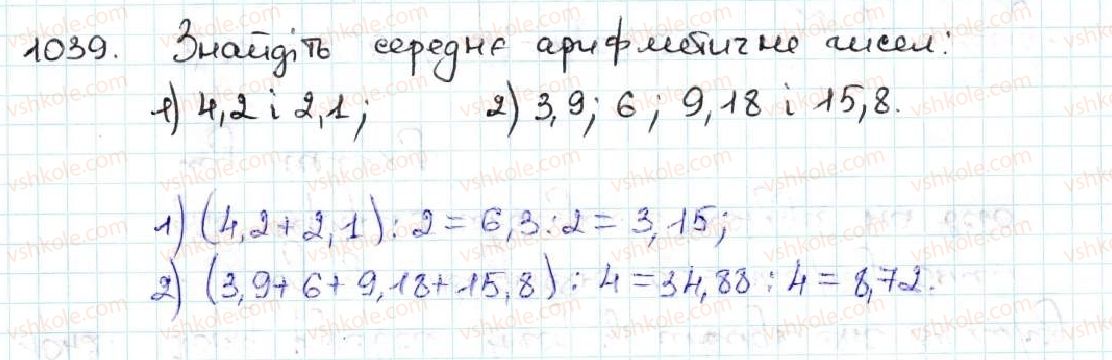 1039. Знайдіть середнє арифметичне чисел:
1) 4,2 і 2,1; 2) 3,9; 6; 9,18 і 15,8.
1) (4,2 + 2,1) : 2 = 6,3 : 2 = 3,15;
2) (3,9 + 6 + 9,18 + 15,8) : 4 = 34,88 : 4 = 8,72.